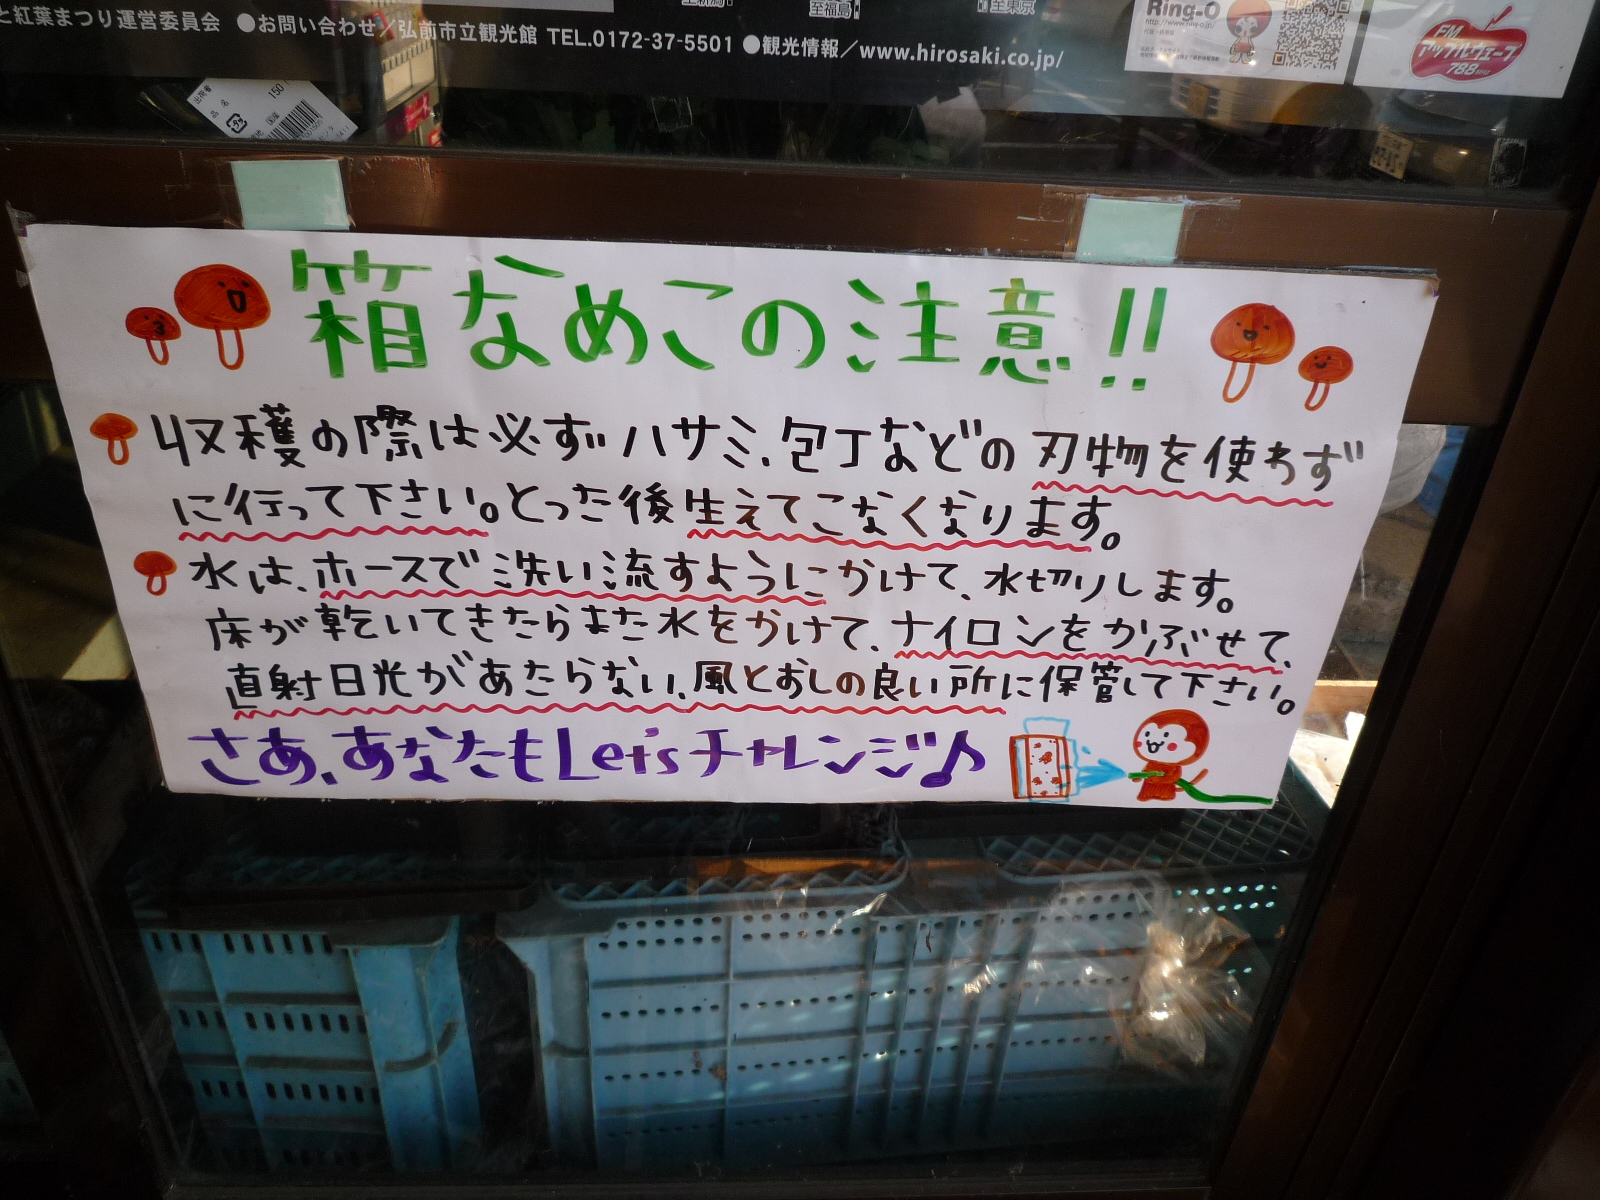 至福島
と紅葉まつり運営委員会 ●お問い合わせ／弘前市立観光館 TEL.0172-37-5501 ●観光情報／www.hirosaki.co.jp/
Ring-O
FM
アップルウェーブ
788
品名
150
箱なめこの注意!!
収穫の際は必ずハサミ、包丁などの刃物を使わず
に行って下さい。とった後生えてこなくなります。
水は、ホースで洗い流すようにかけて、水切りします。
床が乾いてきたらまた水をかけて、ナイロンをかぶせて、
直射日光があたらない、風とおしの良い所に保管して下さい。
さあ、あなたもLet'sチャレンジ♪